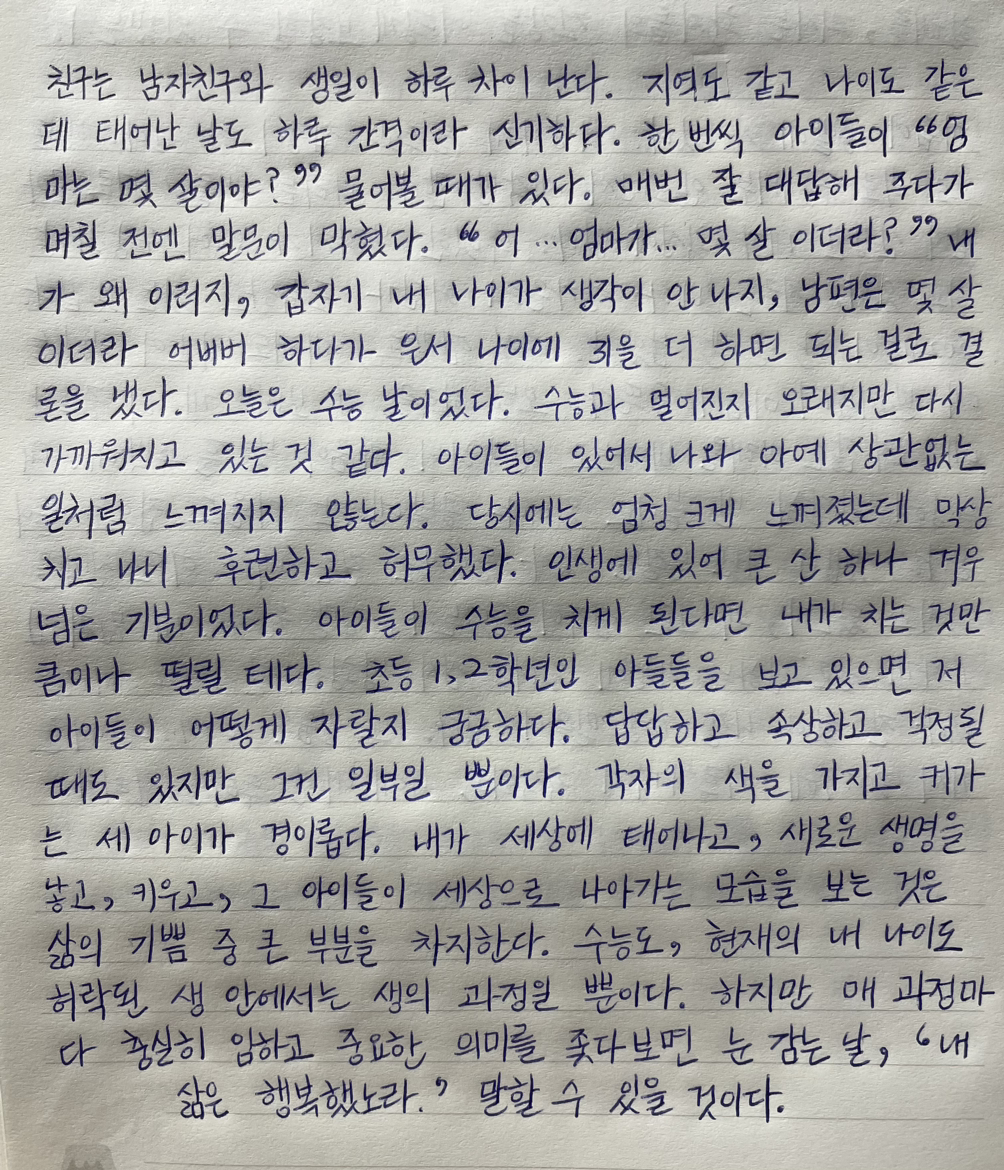 친구는 남자친구와 생일이 하루 차이 난다. 지역도 같고 나이도 같은
데 태어난 날도 하루 간격이라 신기하다. 한 번씩 아이들이 “엄
마는 몇 살이야?” 물어볼 때가 있다. 매번 잘 대답해 주다가
며칠 전엔 말문이 막혔다. “어... 엄마가... 몇 살 이더라?” 내
가 왜 이러지, 갑자기 내 나이가 생각이 안 나지, 남편은 몇 살
이더라 어버버 하다가 은서 나이에 31을 더 하면 되는 걸로 결
론을 냈다. 오늘은 수능 날이었다. 수능과 멀어진지 오래지만 다시
가까워지고 있는 것 같다. 아이들이 있어서 나와 아예 상관없는
일처럼 느껴지지 않는다. 당시에는 엄청 크게 느껴졌는데 막상
치고 나니 후련하고 허무했다. 인생에 있어 큰 산 하나 겨우
넘은 기분이었다. 아이들이 수능을 치게 된다면 내가 치는 것만
큼이나 떨릴 테다. 초등 1,2학년인 아들들을 보고 있으면 저
아이들이 어떻게 자랄지 궁금하다. 답답하고 속상하고 걱정될
때도 있지만 그건 일부일 뿐이다. 각자의 색을 가지고 커가
는 세 아이가 경이롭다. 내가 세상에 태어나고, 새로운 생명을
낳고, 키우고, 그 아이들이 세상으로 나아가는 모습을 보는 것은
삶의 기쁨 중 큰 부분을 차지한다. 수능도, 현재의 내 나이도
허락된 생 안에서는 생의 과정일 뿐이다. 하지만 매 과정마
다 충실히 임하고 중요한 의미를 좇다보면 눈 감는 날, ‘내
삶은 행복했노라.’ 말할 수 있을 것이다.